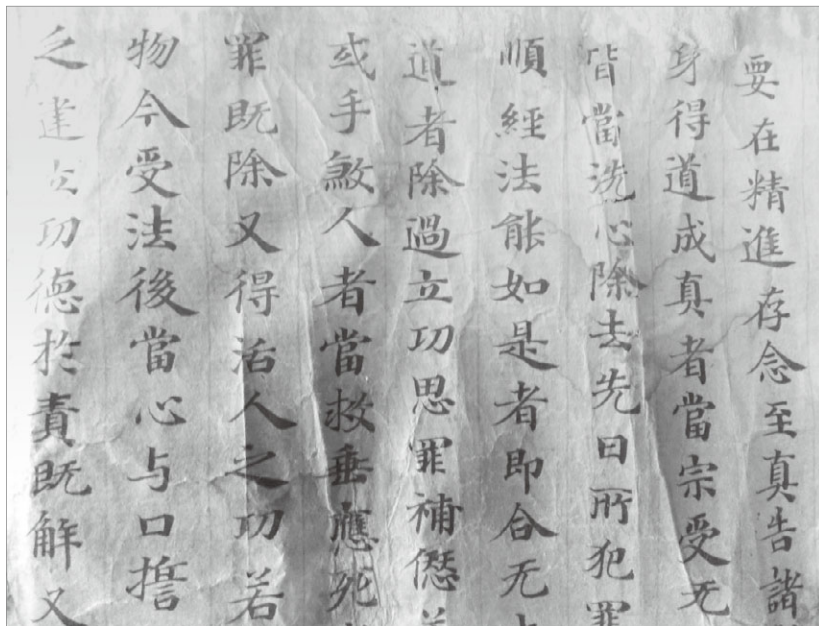 要在精進存念至真告諸
身得道成真者當宗受无
皆當洗心除去先日所犯罪
順經法能如是者即合无
道者除過立功思罪補愆
或手煞人者當救垂應死
罪既除又得活人之功若
物今受法後當心与口誓
之建立功德於責既解又